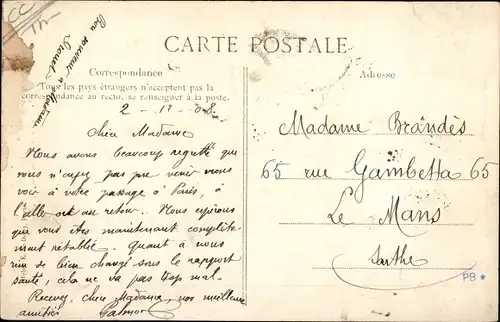 CARTE POSTALE
Correspondance
Tous les pays étrangers n'acceptent pas la
correspondance au recto, se renseigner à la poste.
Adresse
2 - 12 - 08
Chère Madame
Nous avons beaucoup regretté que
vous n'ayez pas pu venir nous
voir à votre passage à Paris, à
l'aller ou au retour. Nous espérons
que vous êtes maintenant complète
ment rétablie. Quant à nous
rien de bien changé sous le rapport
santé, cela ne va pas trop mal.
Recevez, chère Madame, nos meilleures
amitiés
Bon souvenir à
Madame Brandès
65 rue Gambetta 65
Le Mans
Sarthe
PB *